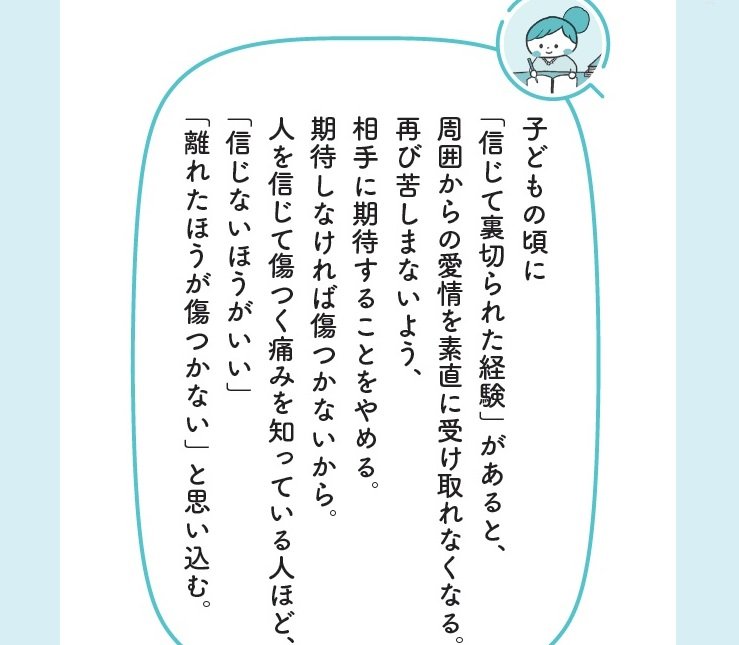 子どもの頃に
「信じて裏切られた経験」があると、
周囲からの愛情を素直に受け取れなくなる。
再び苦しまないよう、
相手に期待することをやめる。
期待しなければ傷つかないから。
人を信じて傷つく痛みを知っている人ほど、
「信じないほうがいい」
「離れたほうが傷つかない」と思い込む。